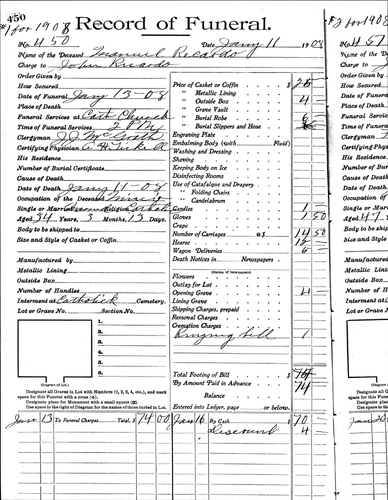 450
#1 for 1908
Record of Funeral.
No. 450
Date Jany 11 1908
Name of the Deceased Manuel Ricardo
Charge to John Ricardo
Order Given by
How Secured
Date of Funeral Jany 13-08
Place of Death
Funeral Services at Cath Church
Time of Funeral Services 2 PM
Clergyman
Certifying Physician
His Residence
Number of Burial Certificate
Cause of Death
Date of Death Jany 11-08
Occupation of the Deceased Miner
Single or Married
Aged 34 Years, 3 Months, 13 Days
Body to be shipped to
Size and Style of Casket or Coffin
Manufactured by
Metallic Lining
Outside Box
Number of Handles
Interment at Catholick Cemetery.
Lot or Grave No. Section No.
1.
2.
3.
4.
5.
6.
(Diagram of Lot.)
Designate all Graves in Lot with Numbers (1, 2, 3, 4, etc.), and mark
space for this Funeral with a cross (+).
Designate place for Monument with a small square (□).
Use space to the right of Diagram for the names of those buried in Lot.
Price of Casket or Coffin $ 25
" Metallic Lining
" Outside Box 4
" Grave Vault
" Burial Robe 6
" Burial Slippers and Hose
Engraving Plate
Embalming Body (with Fluid)
Washing and Dressing
Shaving
Keeping Body on Ice
Disinfecting Rooms
Use of Catafalque and Drapery
" Folding Chairs
" Candelabrum
Candles
Gloves 1 50
Crape
Number of Carriages @ $ 14 50
Hearse 12
Wagon Deliveries 6
Death Notices in Newspapers
(Names of Newspapers)
Flowers
Outlay for Lot
Opening Grave 4
Lining Grave
Shipping Charges, prepaid
Removal Charges
Cremation Charges
Ringing bell 1
Total Footing of Bill $ 74
By Amount Paid in Advance 74
Balance
Entered into Ledger, page or below.
Jan 13 To Funeral Charges Total, $ 74 00
Jan 16 By Cash $ 70
Discount 4
#2 for 1908
No. 451
Name of the
Charge to
Order Given
How Secured
Date of Fun
Place of Dea
Funeral Serv
Time of Fun
Clergyman
Certifying Ph
His Resid
Number of B
Cause of Dea
Date of Deat
Occupation o
Single or Ma
Aged 47
Body to be sh
Size and Sty
Manufacture
Metallic Linin
Outside Box
Number of H
Interment at
Lot or Grave
(Diagram of
Designate all G
space for this Fun
Designate place
Use space to th